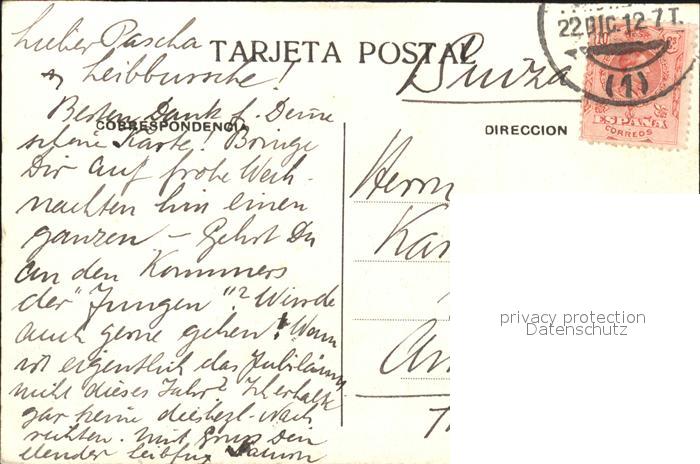 Lieber Pascha
Leibbursche!
TARJETA POSTAL
Suiza
22 DIC. 12 7 T.
(1)
ESPAÑA
CORREOS
CORRESPONDENCIA
DIRECCION
Besten Dank f. Deine
schöne Karte! Bringe
Dir auf frohe Weih-
nachten hin einen
ganzen – Gehst Du
an den Kommers
der "Jungen"? Würde
auch gerne gehen! Wann
ist eigentlich das Jubiläum
nicht dieses Jahr? Ich erhalte
gar keine diesbezl. Nach
richten. Mit Gruss Dein
Leibfux
Herrn
privacy protection
Datenschutz